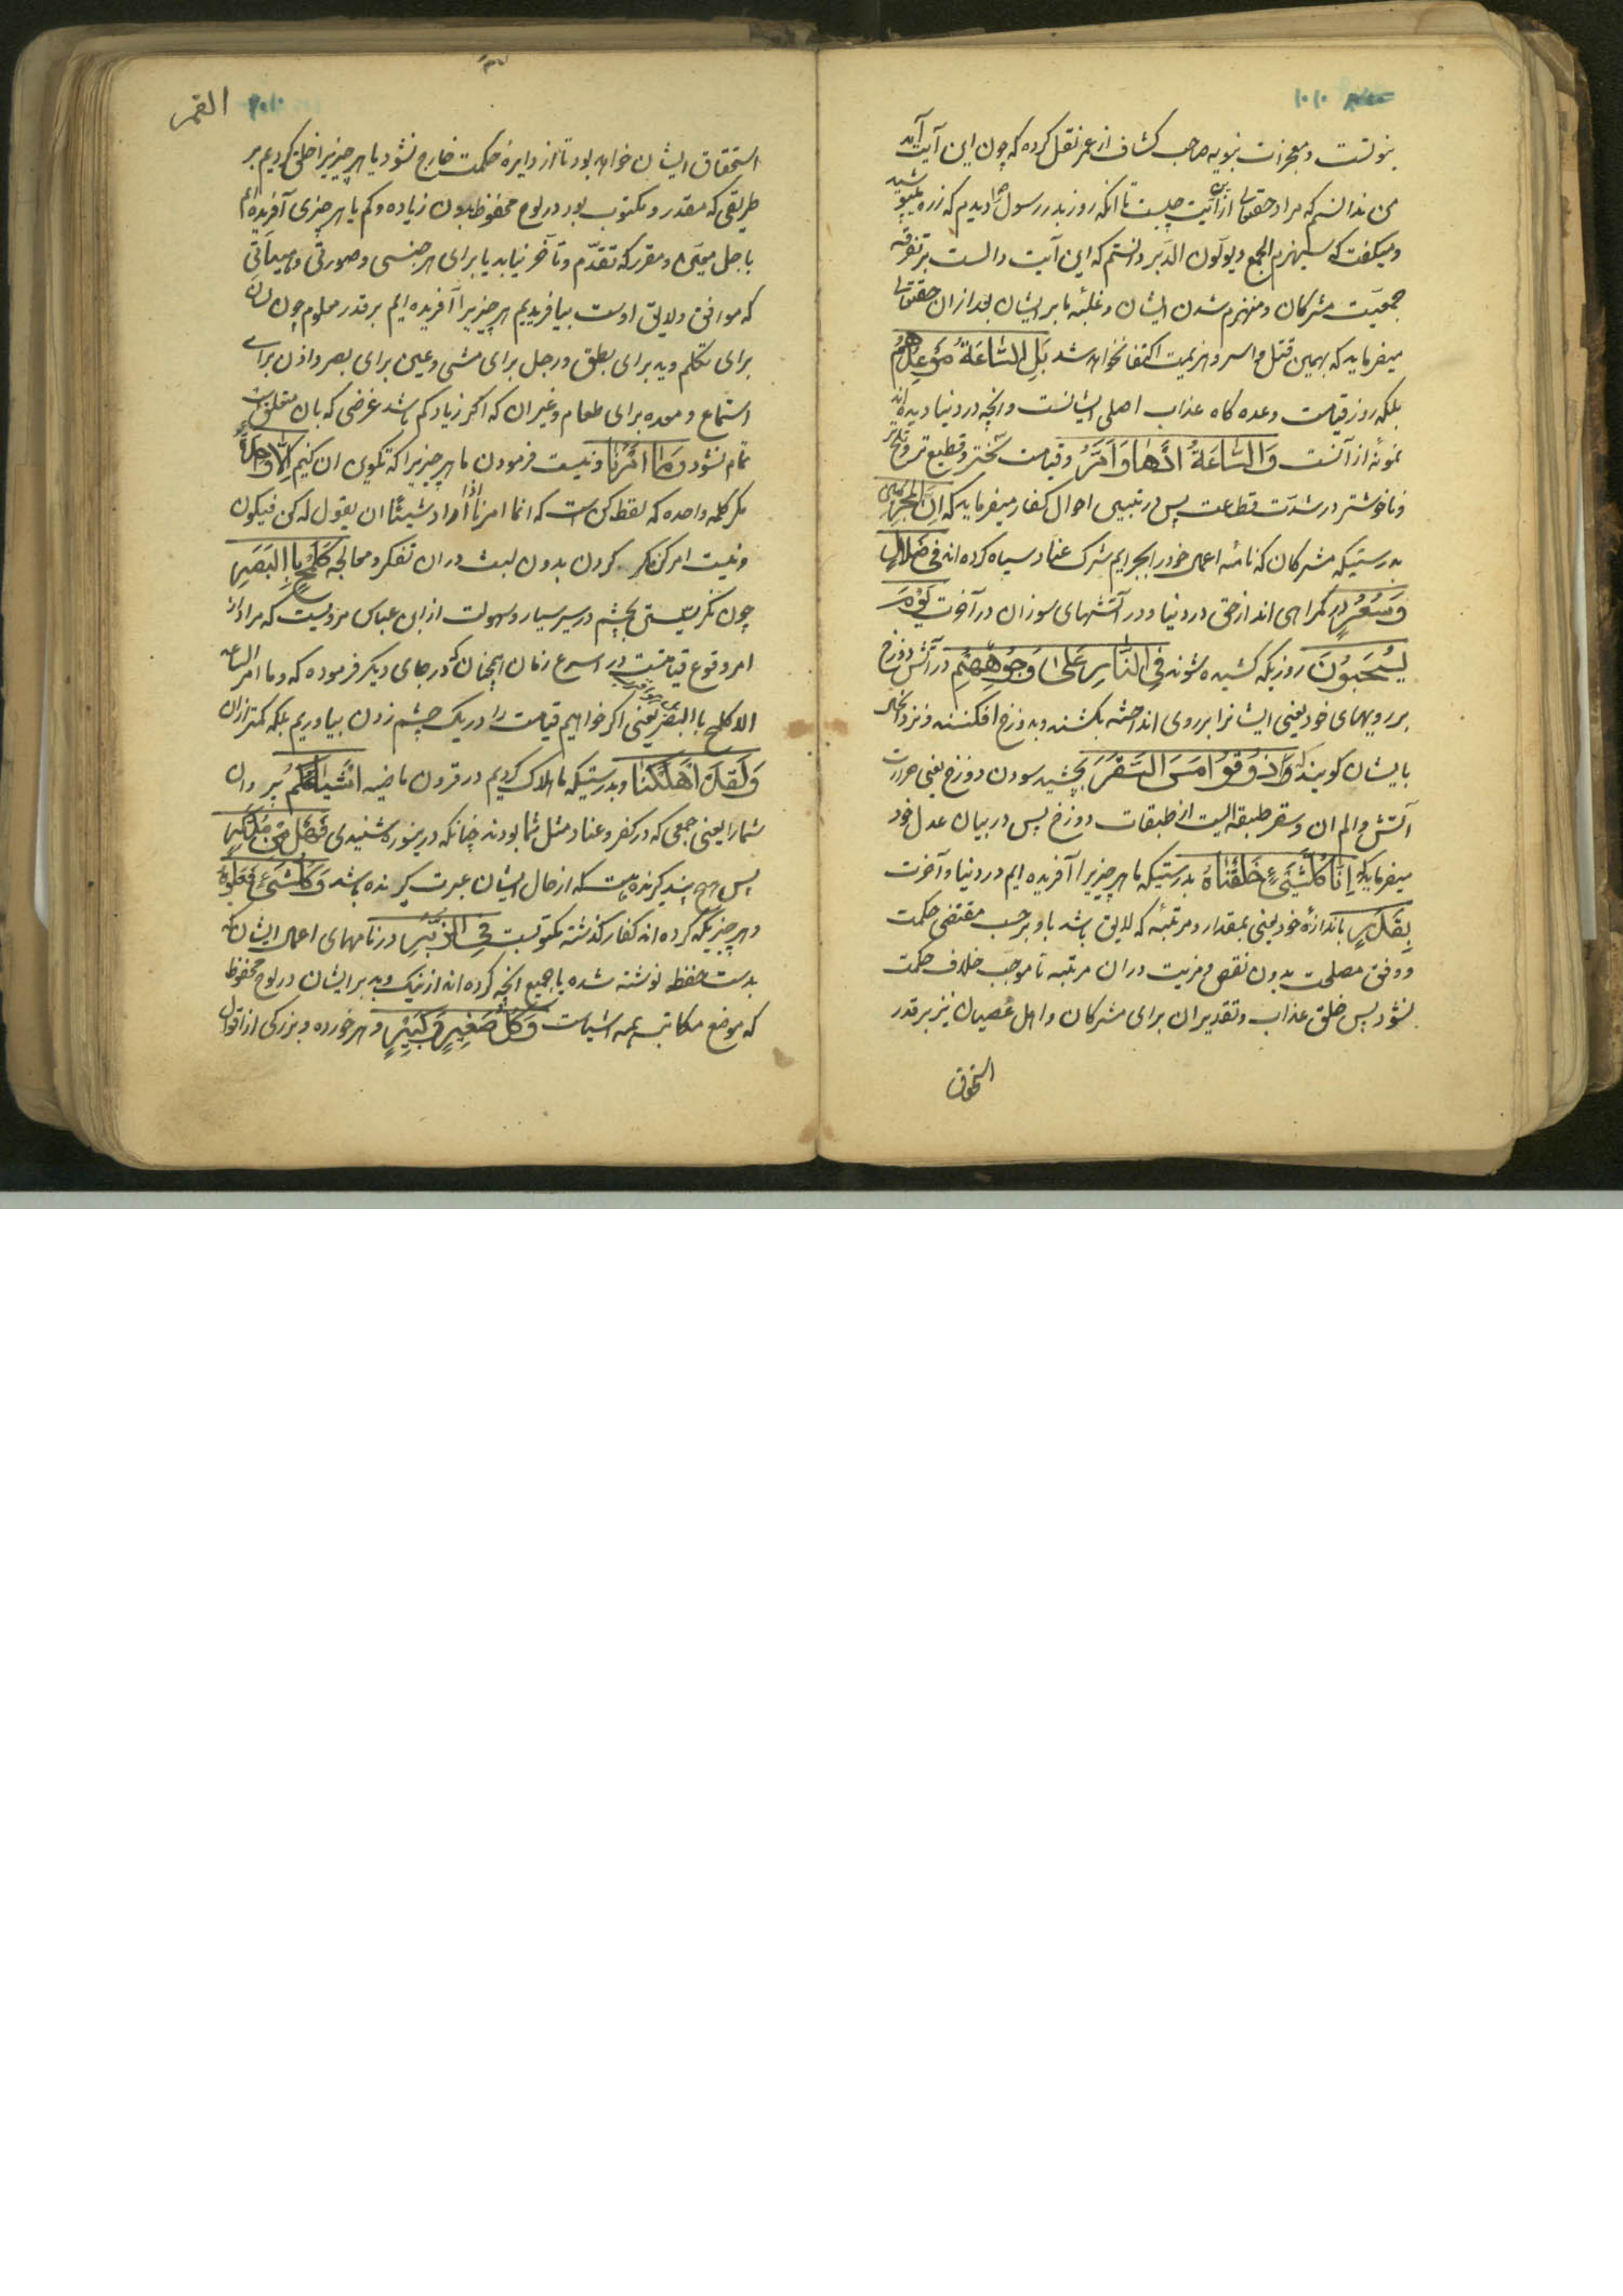 ۱۰۱۰
نبوتست و معجزات نبویه صاحب کشاف از عمر نقل کرده که چون این آیت آمد
من ندانستم که مراد حقتعالی ازین آیت چیست تا آنکه روز بدر رسول ص را دیدم که زره میپوشید
و میگفت که سیهزم الجمع و یولون الدبر دانستم که این آیت دالست بر تفرقه
جمعیت مشرکان و منهزم شدن ایشان و غلبه ما بر ایشان بعد از ان حقتعالی
میفرماید که بهمین قتل و اسر و هزیمت اکتفا نخواهد شد بَلِ السَّاعَةُ مَوْعِدُهُمْ
بلکه روز قیامت وعده گاه عذاب اصلی ایشانست و انچه در دنیا دیده اند
نمونه از آنست وَالسَّاعَةُ اَدْهٰى وَاَمَرُّ و قیامت سختر و قطیع تر و تلخ تر
و ناخوشتر در شدت قطاعت پس در تبیین احوال کفار میفرماید که اِنَّ الْمُجْرِمِینَ
بدرستیکه مشرکان که نامه اعمال خود را بجرایم شرک عناد سیاه کرده اند فِی ضَلَالٍ
وَسُعُرٍ در گمراهی اند از حق در دنیا و در آتشهای سوزان در آخرت یَوْمَ
یُسْحَبُونَ روزیکه کشیده شوند فِی النَّارِ عَلٰى وُجُوهِهِمْ در آتش دوزخ
بر رویهای خود یعنی ایشانرا بر روی انداخته بکشند و بدوزخ افکنند و نزد انحال
بایشان گویند که ذُوقُوا مَسَّ السَّقَرَ بچشید سودن دوزخ یعنی حرارت
آتش و الم ان و سقر طبقه ایست از طبقات دوزخ پس در بیان عدل خود
میفرماید که اِنَّا كُلَّ شَیْءٍ خَلَقْنَاهُ بدرستیکه ما هر چیزیرا آفریده ایم در دنیا و آخرت
بِقَدَرٍ باندازه خود یعنی بمقدار و مرتبه که لایق باشد باو بر حسب مقتضی حکمت
و وفق مصلحت بدون نقص و مزیت دران مرتبه تا موجب خلاف حکمت
نشود پس خلق عذاب و تقدیر ان برای مشرکان و اهل عصیان نیز بر قدر
استحقاق
القمر
استحقاق ایشان خواهد بود تا از دایره حکمت خارج نشود یا هر چیزیرا خلق کردیم بر
طریقی که مقدر و مکتوب بود در لوح محفوظ بدون زیاده و کم یا هر چیزی آفریده ایم
باجل معین و مقرر که تقدّم و تاخر نیابد یا برای هر جنسی و صورتی و هیئاتی
که موافق و لایق اوست بیافریدیم هر چیزیرا آفریده ایم بر قدر معلوم چون لسان
برای تکلم و ید برای بطش و رجل برای مشی و عین برای بصر و اذن برای
استماع و معده برای طعام و غیر ان که اگر زیاد کم باشد غرضی که بان متعلق است
تمام نشود وَمَا اَمْرُنَا و نیست فرمودن ما هر چیزیرا که تکوین ان کنیم اِلَّا وَاحِدَةٌ
مگر کلمه واحده که لفظ کن است که انما امرنا اذا اراد شیئا ان یقول له کن فیکون
و نیست امر کردن بدون لبث دران تفکر و معالجه كَلَمْحٍ بِالْبَصَرِ
چون نگریستی بچشم در سیر سیار و سهولت از ابن عباس مرویست که مراد از
امر وقوع قیامتست در اسرع زمان همچنان که در جای دیگر فرموده که و ما امر الساعة
الا کلمح بالبصر یعنی اگر خواهیم قیامت را در یک چشم زدن بیاوریم بلکه کمتر ازان
وَلَقَدْ اَهْلَكْنَا و بدرستیکه ما هلاک کردیم در قرون ماضیه اَشْیَاعَكُمْ پیروان
شما را یعنی جمعی که در کفر و عناد مثل شما بودند چنانکه درینسوره شنیدی فَهَلْ مِنْ مُدَّكِرٍ
پس هیچ پند گیرنده هست که از حال ایشان عبرت گیرنده باشد وَكُلُّ شَیْءٍ فَعَلُوهُ
و هر چیزیکه کرده اند کفار گذشته مکتوبست فِی الزُّبُرِ در نامهای اعمال ایشان که
بدست حفظه نوشته شده یا جمیع انچه کرده اند از نیک و بد بر ایشان در لوح محفوظ
که موضع مکاتبه همه اشیاست وَكُلُّ صَغِیرٍ وَكَبِیرٍ و هر خورده و بزرگی از اقوال